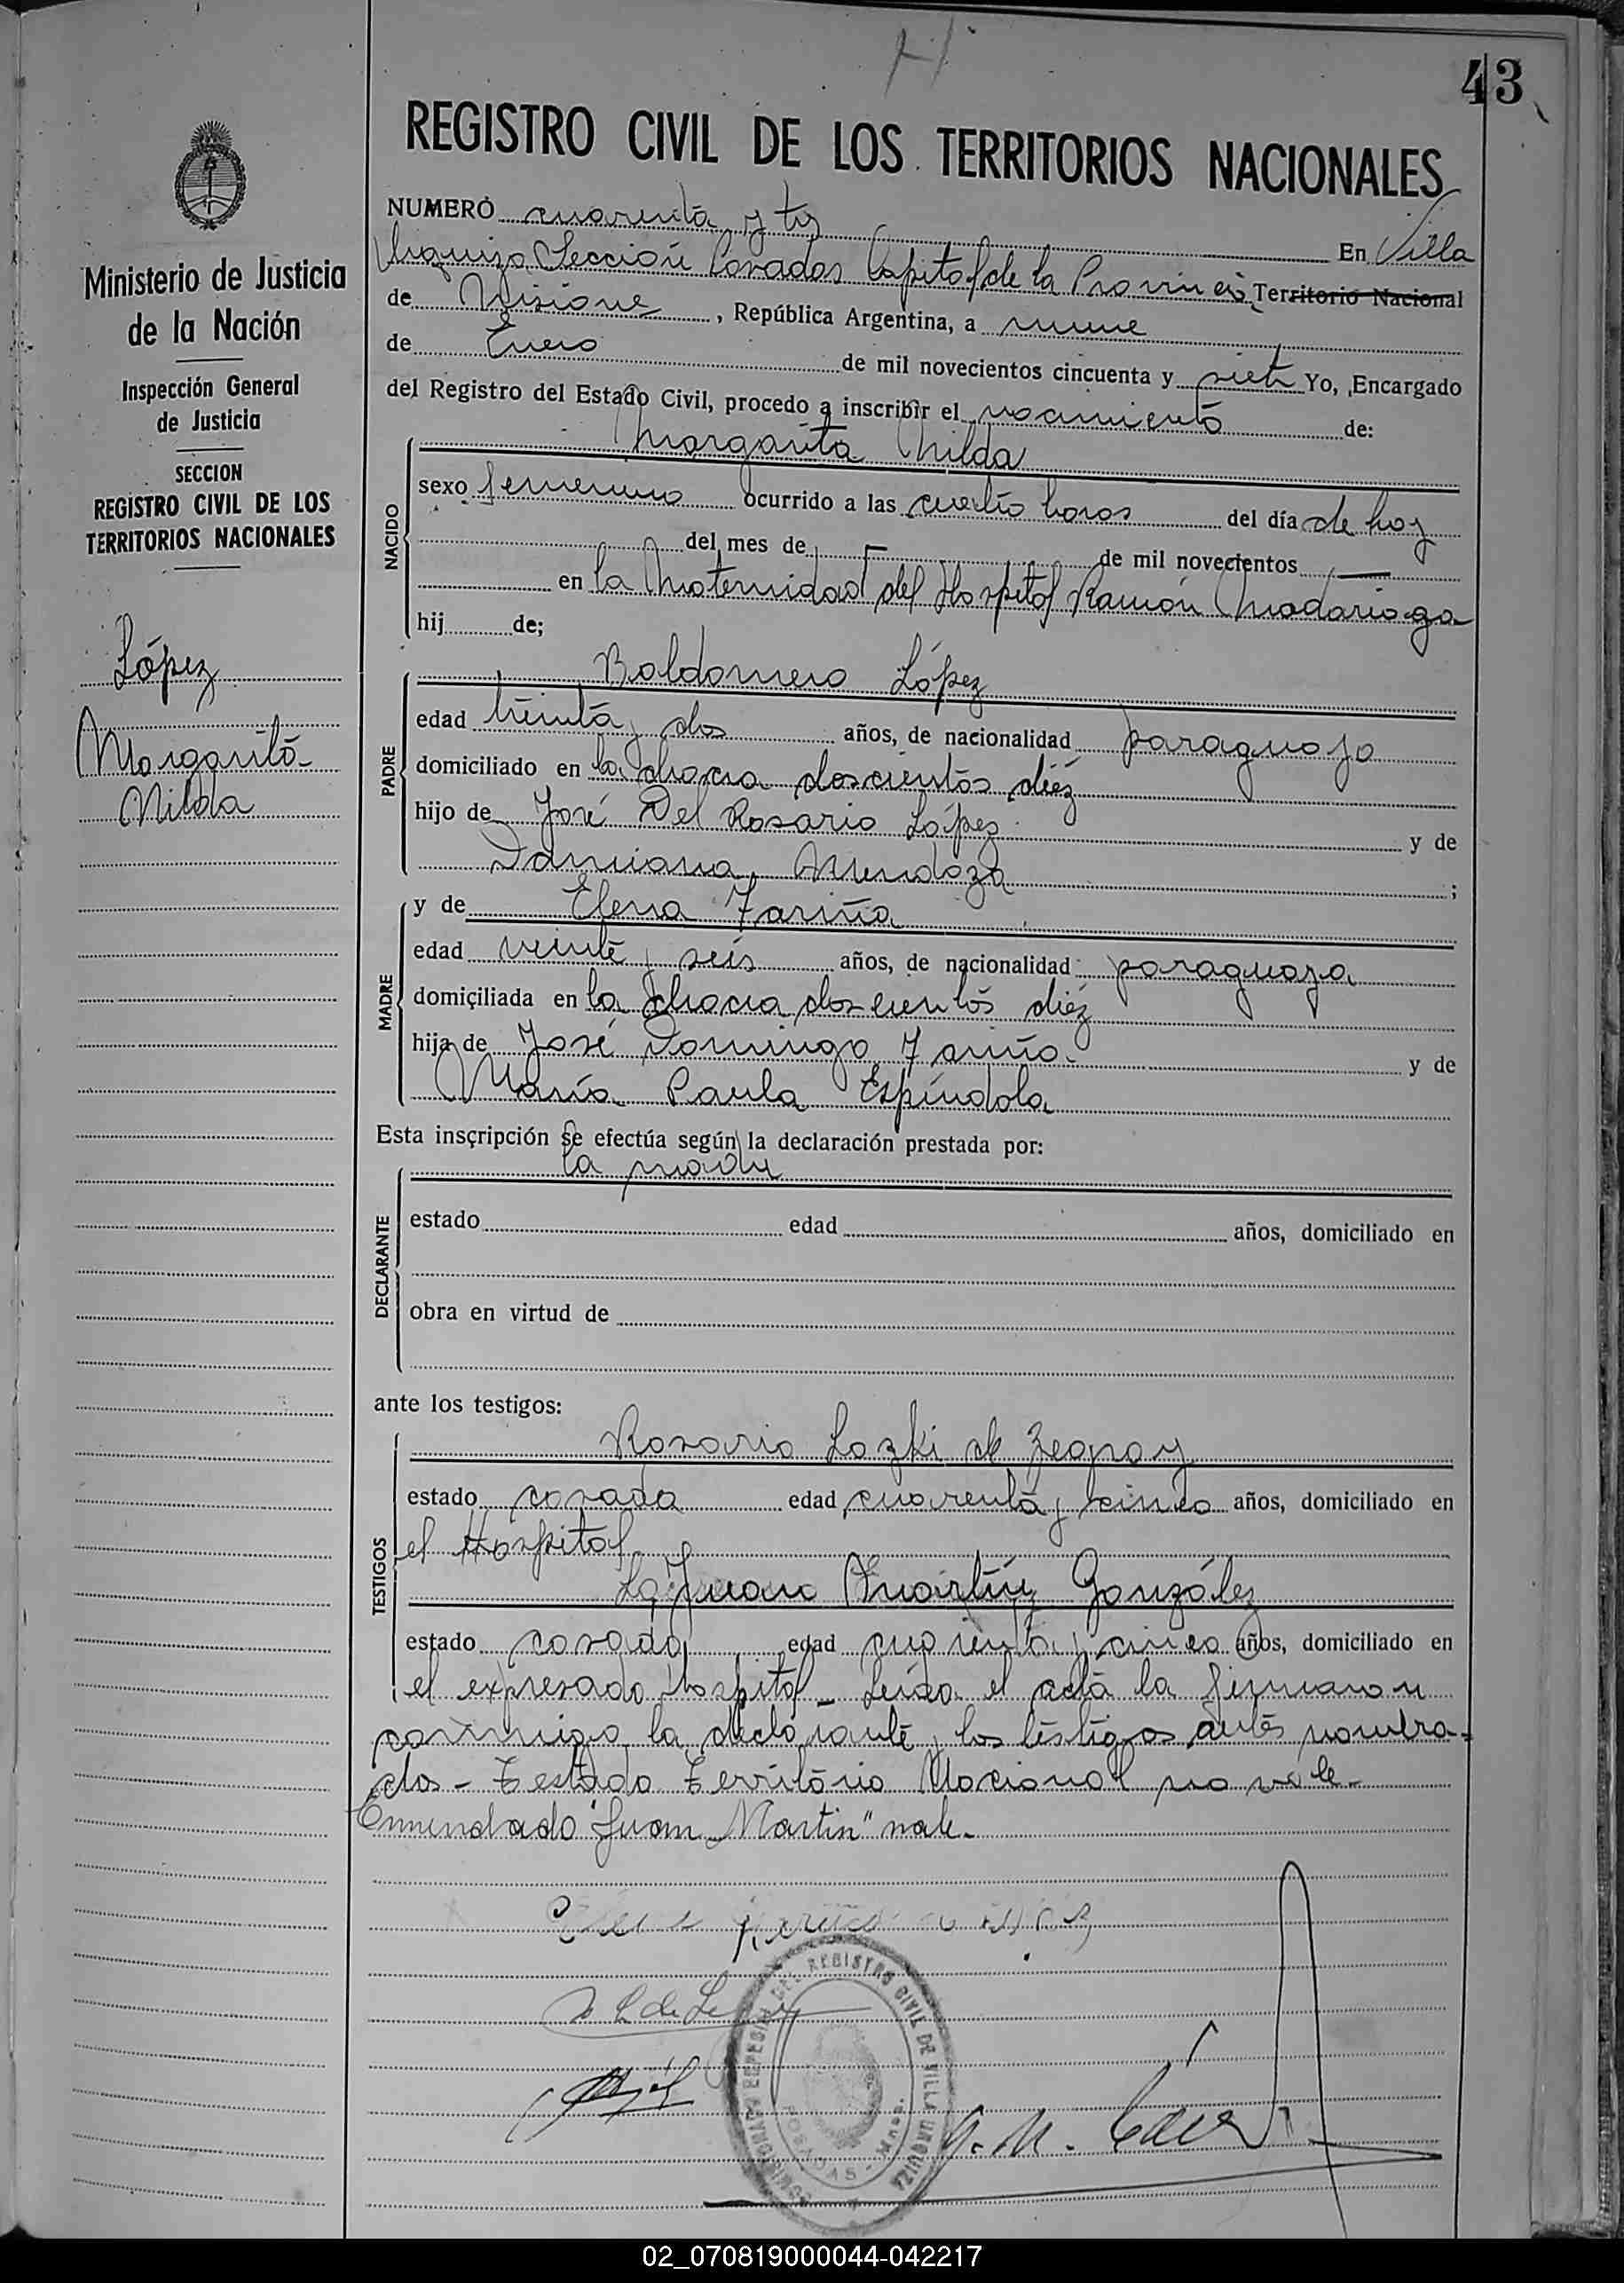 43
REGISTRO CIVIL DE LOS TERRITORIOS NACIONALES
Ministerio de Justicia
de la Nación
Inspección General
de Justicia
SECCION
REGISTRO CIVIL DE LOS
TERRITORIOS NACIONALES
López
Margarita
Nilda
NUMERO cuarenta y tres En Villa
Urquiza Sección Posadas Capital de la Provincia Territorio Nacional
de Misiones, República Argentina, a nueve
de Enero de mil novecientos cincuenta y siete Yo, Encargado
del Registro del Estado Civil, procedo a inscribir el nacimiento de:
NACIDO
Margarita Nilda
sexo femenino ocurrido a las cuatro horas del día de hoy
del mes de — de mil novecientos —
en la Maternidad del Hospital Ramón Madariaga
hij de;
PADRE
Baldomero López
edad treinta y dos años, de nacionalidad paraguayo
domiciliado en la chacra doscientos diez
hijo de José Del Rosario López y de
Damiana Mendoza;
MADRE
y de Elena Fariña
edad veinte y seis años, de nacionalidad paraguaya
domiciliada en la chacra doscientos diez
hija de José Domingo Fariña y de
María Paula Espíndola
Esta inscripción se efectúa según la declaración prestada por:
DECLARANTE
la madre
estado edad años, domiciliado en
obra en virtud de
ante los testigos:
TESTIGOS
Rosario Lazki de
estado casada edad cuarenta y cinco años, domiciliado en
el Hospital
Juan Martín González
estado casado edad cuarenta y cinco años, domiciliado en
el expresado Hospital - Leída el acta la firmaron
conmigo la declarante y los testigos antes nombra-
dos - Testado Territorio Nacional no vale-
Enmendado "Juan Martin" vale.
REGISTRO CIVIL DE VILLA URQUIZA
POSADAS - Mnes.
02_070819000044-042217